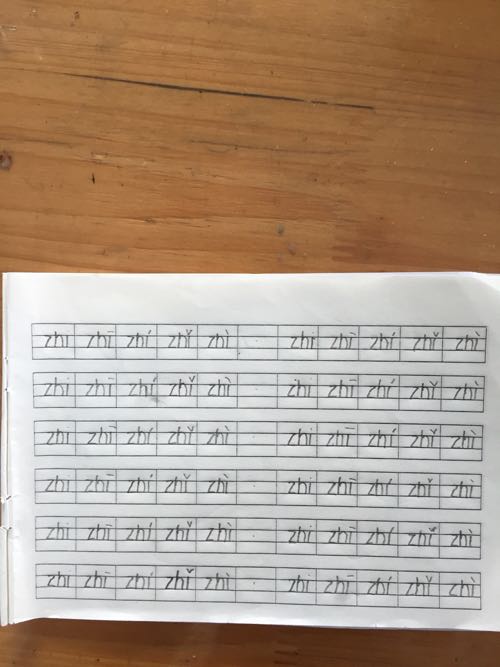 zhi zhī zhí zhǐ zhì zhi zhī zhí zhǐ zhì
zhi zhī zhí zhǐ zhì zhi zhī zhí zhǐ zhì
zhi zhī zhí zhǐ zhì zhi zhī zhí zhǐ zhì
zhi zhī zhí zhǐ zhì zhi zhī zhí zhǐ zhì
zhi zhī zhí zhǐ zhì zhi zhī zhí zhǐ zhì
zhi zhī zhí zhǐ zhì zhi zhī zhí zhǐ zhì